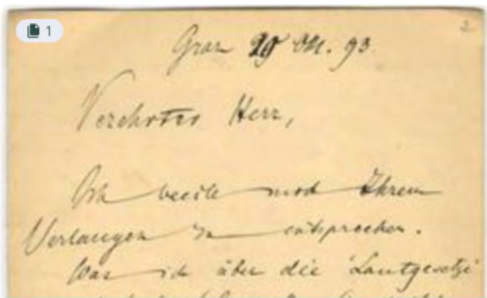 1
2
Graz 29 Okt. 93.
Verehrter Herr,
Ich beeile mich Ihrem
Verlangen zu entsprechen.
Was ich über die Lautgesetze